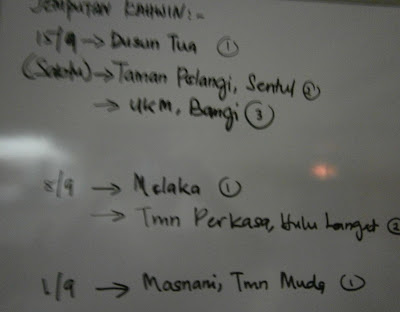 JEMPUTAN KAHWIN:-
15/9 → Dusun Tua ①
(Sabtu) → Taman Pelangi, Sentul ②
→ UKM, Bangi ③
8/9 → Melaka ①
→ Tmn Perkasa, Hulu Langat ②
1/9 → Masnani, Tmn Muda ①